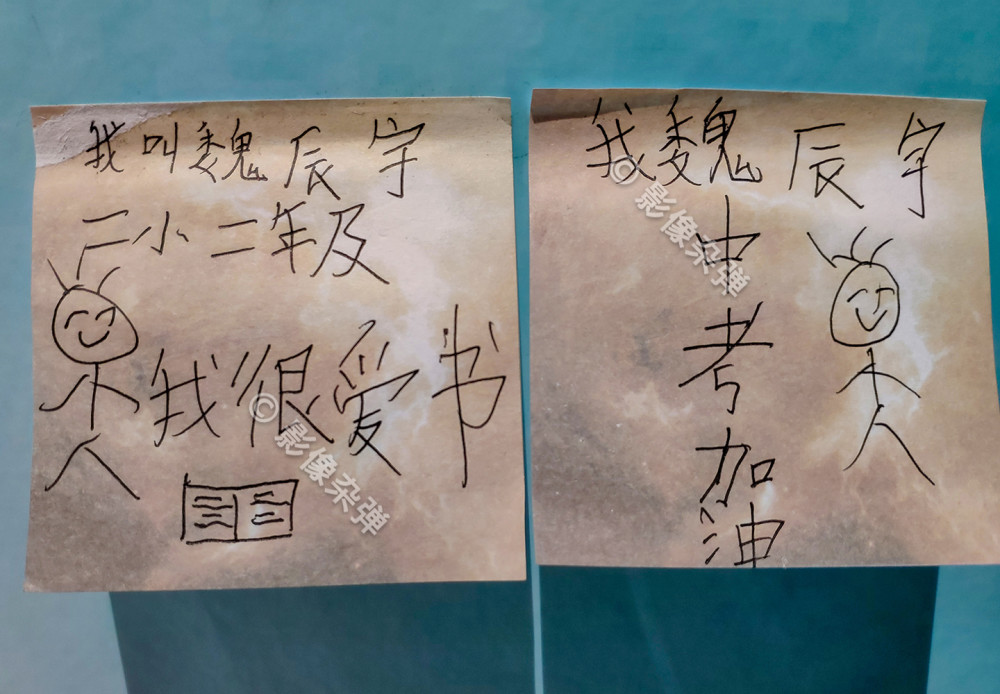 我叫魏辰宇
二小二年及
我很爱书
我魏辰宇
中
考
加
油
© 影像杂弹
© 影像杂弹